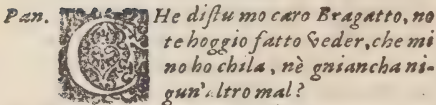 Pan. CHe distu mo caro Bragatto, no
te hoggio fatto veder, che mi
no ho chila, nè gnianca ni-
gun'altro mal?